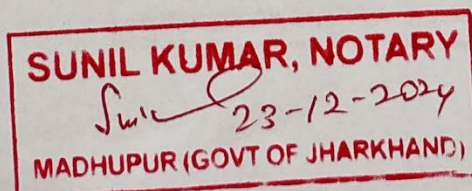 SUNIL KUMAR, NOTARY
23-12-2024
MADHUPUR (GOVT OF JHARKHAND)